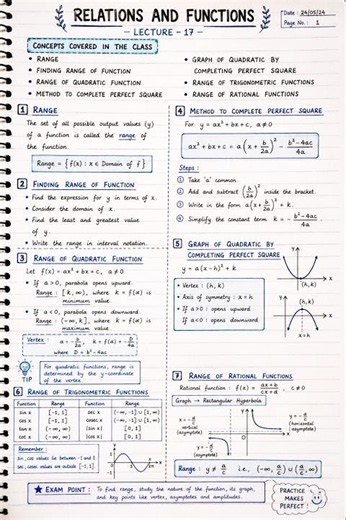 RELATIONS AND FUNCTIONS
- LECTURE - 17 -
Date : 24/05/24
Page No. : 1
CONCEPTS COVERED IN THE CLASS
• RANGE
• FINDING RANGE OF FUNCTION
• RANGE OF QUADRATIC FUNCTION
• METHOD TO COMPLETE PERFECT SQUARE
• GRAPH OF QUADRATIC BY
COMPLETING PERFECT SQUARE
• RANGE OF TRIGONOMETRIC FUNCTIONS
• RANGE OF RATIONAL FUNCTIONS
1 RANGE
The set of all possible output values (y)
of a function is called the range of
the function.
Range = { f(x) : x ∈ Domain of f }
2 FINDING RANGE OF FUNCTION
• Find the expression for y in terms of x.
• Consider the domain of x.
• Find the least and greatest value
of y.
• Write the range in interval notation.
3 RANGE OF QUADRATIC FUNCTION
Let f(x) = ax² + bx + c, a ≠ 0
• If a > 0, parabola opens upward
Range : [k, ∞), where k = f(α) is
minimum value
• If a < 0, parabola opens downward
Range : (-∞, k], where k = f(α) is
maximum value.
Vertex : α = - b/2a, k = f(α) = - D/4a
where D = b² - 4ac
TIP
For quadratic functions, range is
determined by the y-coordinate
of the vertex.
4 METHOD TO COMPLETE PERFECT SQUARE
For y = ax² + bx + c, a ≠ 0
ax² + bx + c = a(x + b/2a)² - b² - 4ac/4a
Steps :
① Take 'a' common.
② Add and subtract (b/2a)² inside the bracket.
③ Write in the form a(x + b/2a)² + k.
④ Simplify the constant term k = - b² - 4ac/4a
5 GRAPH OF QUADRATIC BY
COMPLETING PERFECT SQUARE
y = a(x - h)² + k
• Vertex : (h, k)
• Axis of symmetry : x = h
• If a > 0 : opens upward
If a < 0 : opens downward
Y
X
(h, k)
Y
(h, k)
X
6 RANGE OF TRIGONOMETRIC FUNCTIONS
Function Range Function Range
sin x [-1, 1] sec x (-∞, -1] ∪ [1, ∞)
cos x [-1, 1] cosec x (-∞, -1] ∪ [1, ∞)
tan x (-∞, ∞) |sin x| [0, 1]
cot x (-∞, ∞) |cos x| [0, 1]
Remember :
sin, cos values lie between -1 and 1
sec, cosec values are outside [-1, 1].
7 RANGE OF RATIONAL FUNCTIONS
Rational function : f(x) = ax + b/cx + d, c ≠ 0
Graph → Rectangular Hyperbola
(vertical
asymptote)
(horizontal
asymptote)
Range : y ≠ a/c i.e., (-∞, a/c) ∪ (a/c, ∞)
★ EXAM POINT : To find range, study the nature of the function, its graph,
and key points like vertex, asymptotes and amplitudes.
PRACTICE
MAKES
PERFECT!